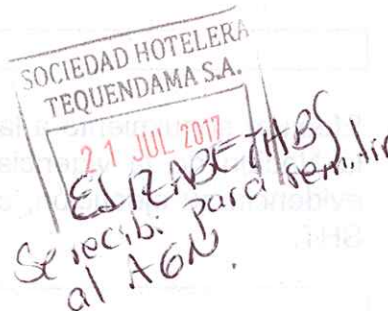 SOCIEDAD HOTELERA
TEQUENDAMA S.A.
21 JUL 2017
ELIZABETHBS
Se recibi para remitir
al AGN.